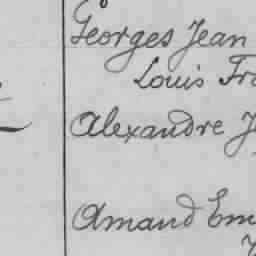 Georges Jean
Louis
Alexandre
Amand